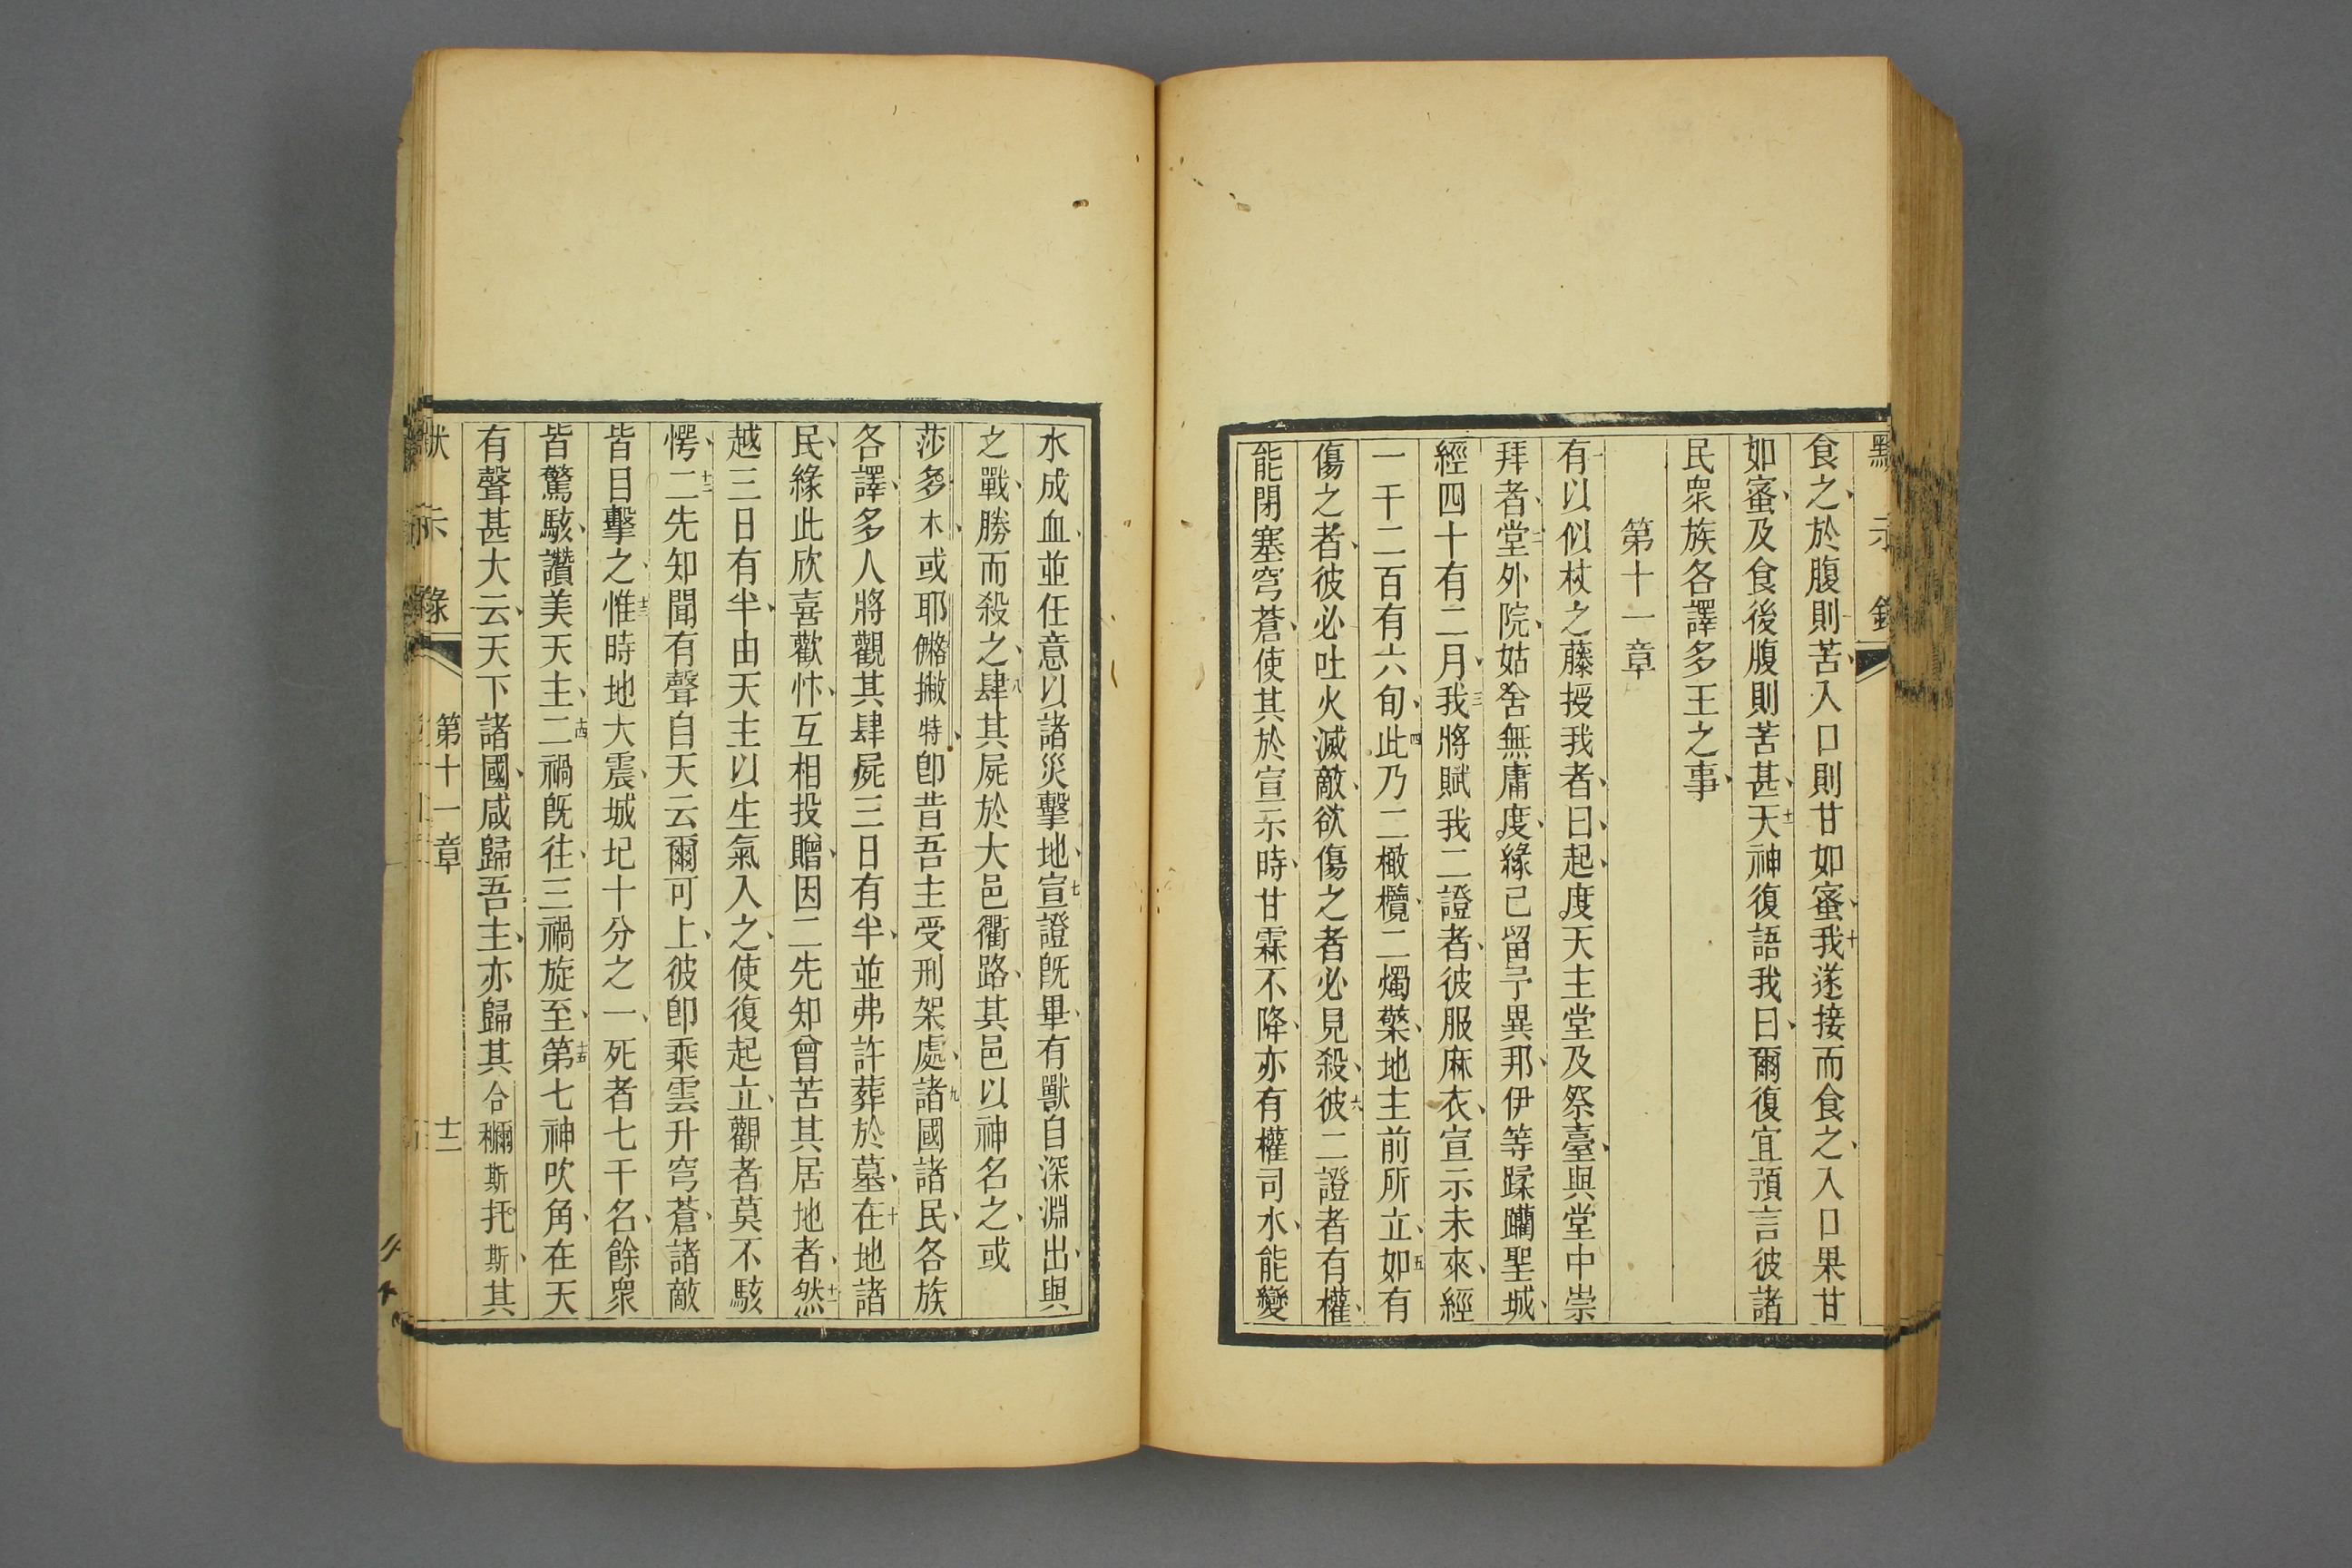 默示錄
食之、於腹則苦、入口則甘如蜜、十我遂接而食之、入口果甘
如蜜、及食後腹則苦甚、十一天神復語我曰、爾復宜預言彼諸
民衆族各譯多王之事、
第十一章
一有以似杖之藤授我者、曰、起、度天主堂及祭臺、與堂中崇
拜者、二堂外院、姑舍無庸度、緣已留予異邦、伊等蹂躪聖城、
經四十有二月、三我將賦我二證者、彼服麻衣、宣示未來、經
一千二百有六旬、四此乃二橄欖、二燭檠、地主前所立、五如有
傷之者、彼必吐火滅敵、欲傷之者必見殺、六彼二證者有權、
能閉塞穹蒼、使其於宣示時、甘霖不降、亦有權司水、能變
水成血、並任意以諸災擊地、七宣證旣畢、有獸自深淵出、與
之戰、勝而殺之、八肆其屍於大邑衢路、其邑以神名之、或
莎多木、或耶𠐺撇特、卽昔吾主受刑架處、九諸國諸民、各族
各譯、多人將觀其肆屍三日有半、並弗許葬於墓、十在地諸
民、緣此欣喜歡忭、互相投贈、因二先知曾苦其居地者、十一然
越三日有半、由天主以生氣入之、使復起立、觀者莫不駭
愕、十二二先知聞有聲自天云爾可上、彼卽乘雲升穹蒼、諸敵
皆目擊之、十三惟時地大震、城圮十分之一、死者七千名、餘衆
皆驚駭、讚美天主、十四二禍旣往、三禍旋至、十五第七神吹角、在天
有聲甚大云、天下諸國、咸歸吾主、亦歸其合穪斯托斯、其
示錄
第十一章
十二